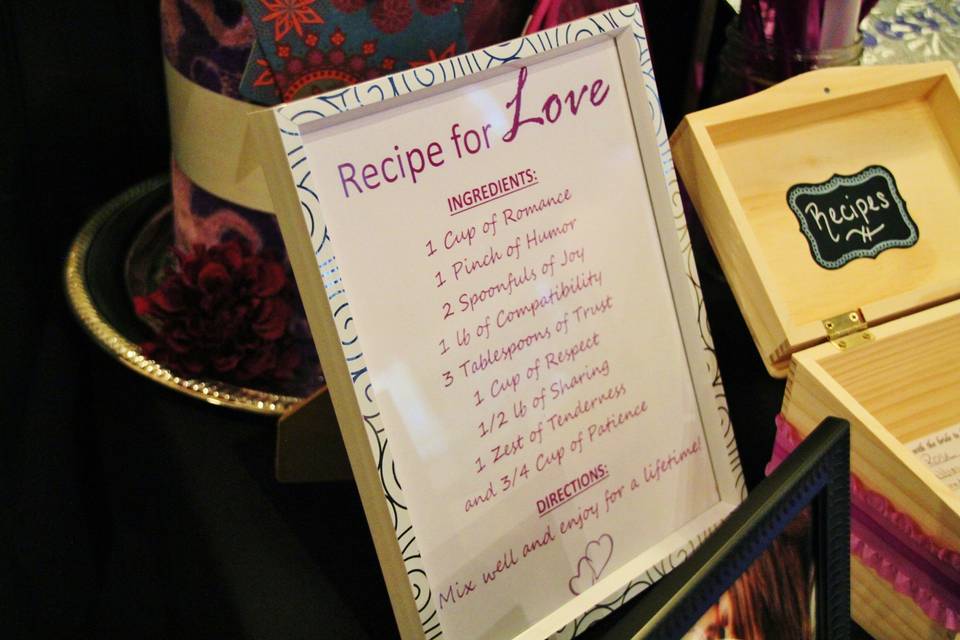 Recipe for Love
INGREDIENTS:
1 Cup of Romance
1 Pinch of Humor
2 Spoonfuls of Joy
1 lb of Compatibility
3 Tablespoons of Trust
1 Cup of Respect
1/2 lb of Sharing
1 Zest of Tenderness
and 3/4 Cup of Patience
DIRECTIONS:
Mix well and enjoy for a lifetime!
Recipes
with the bride to